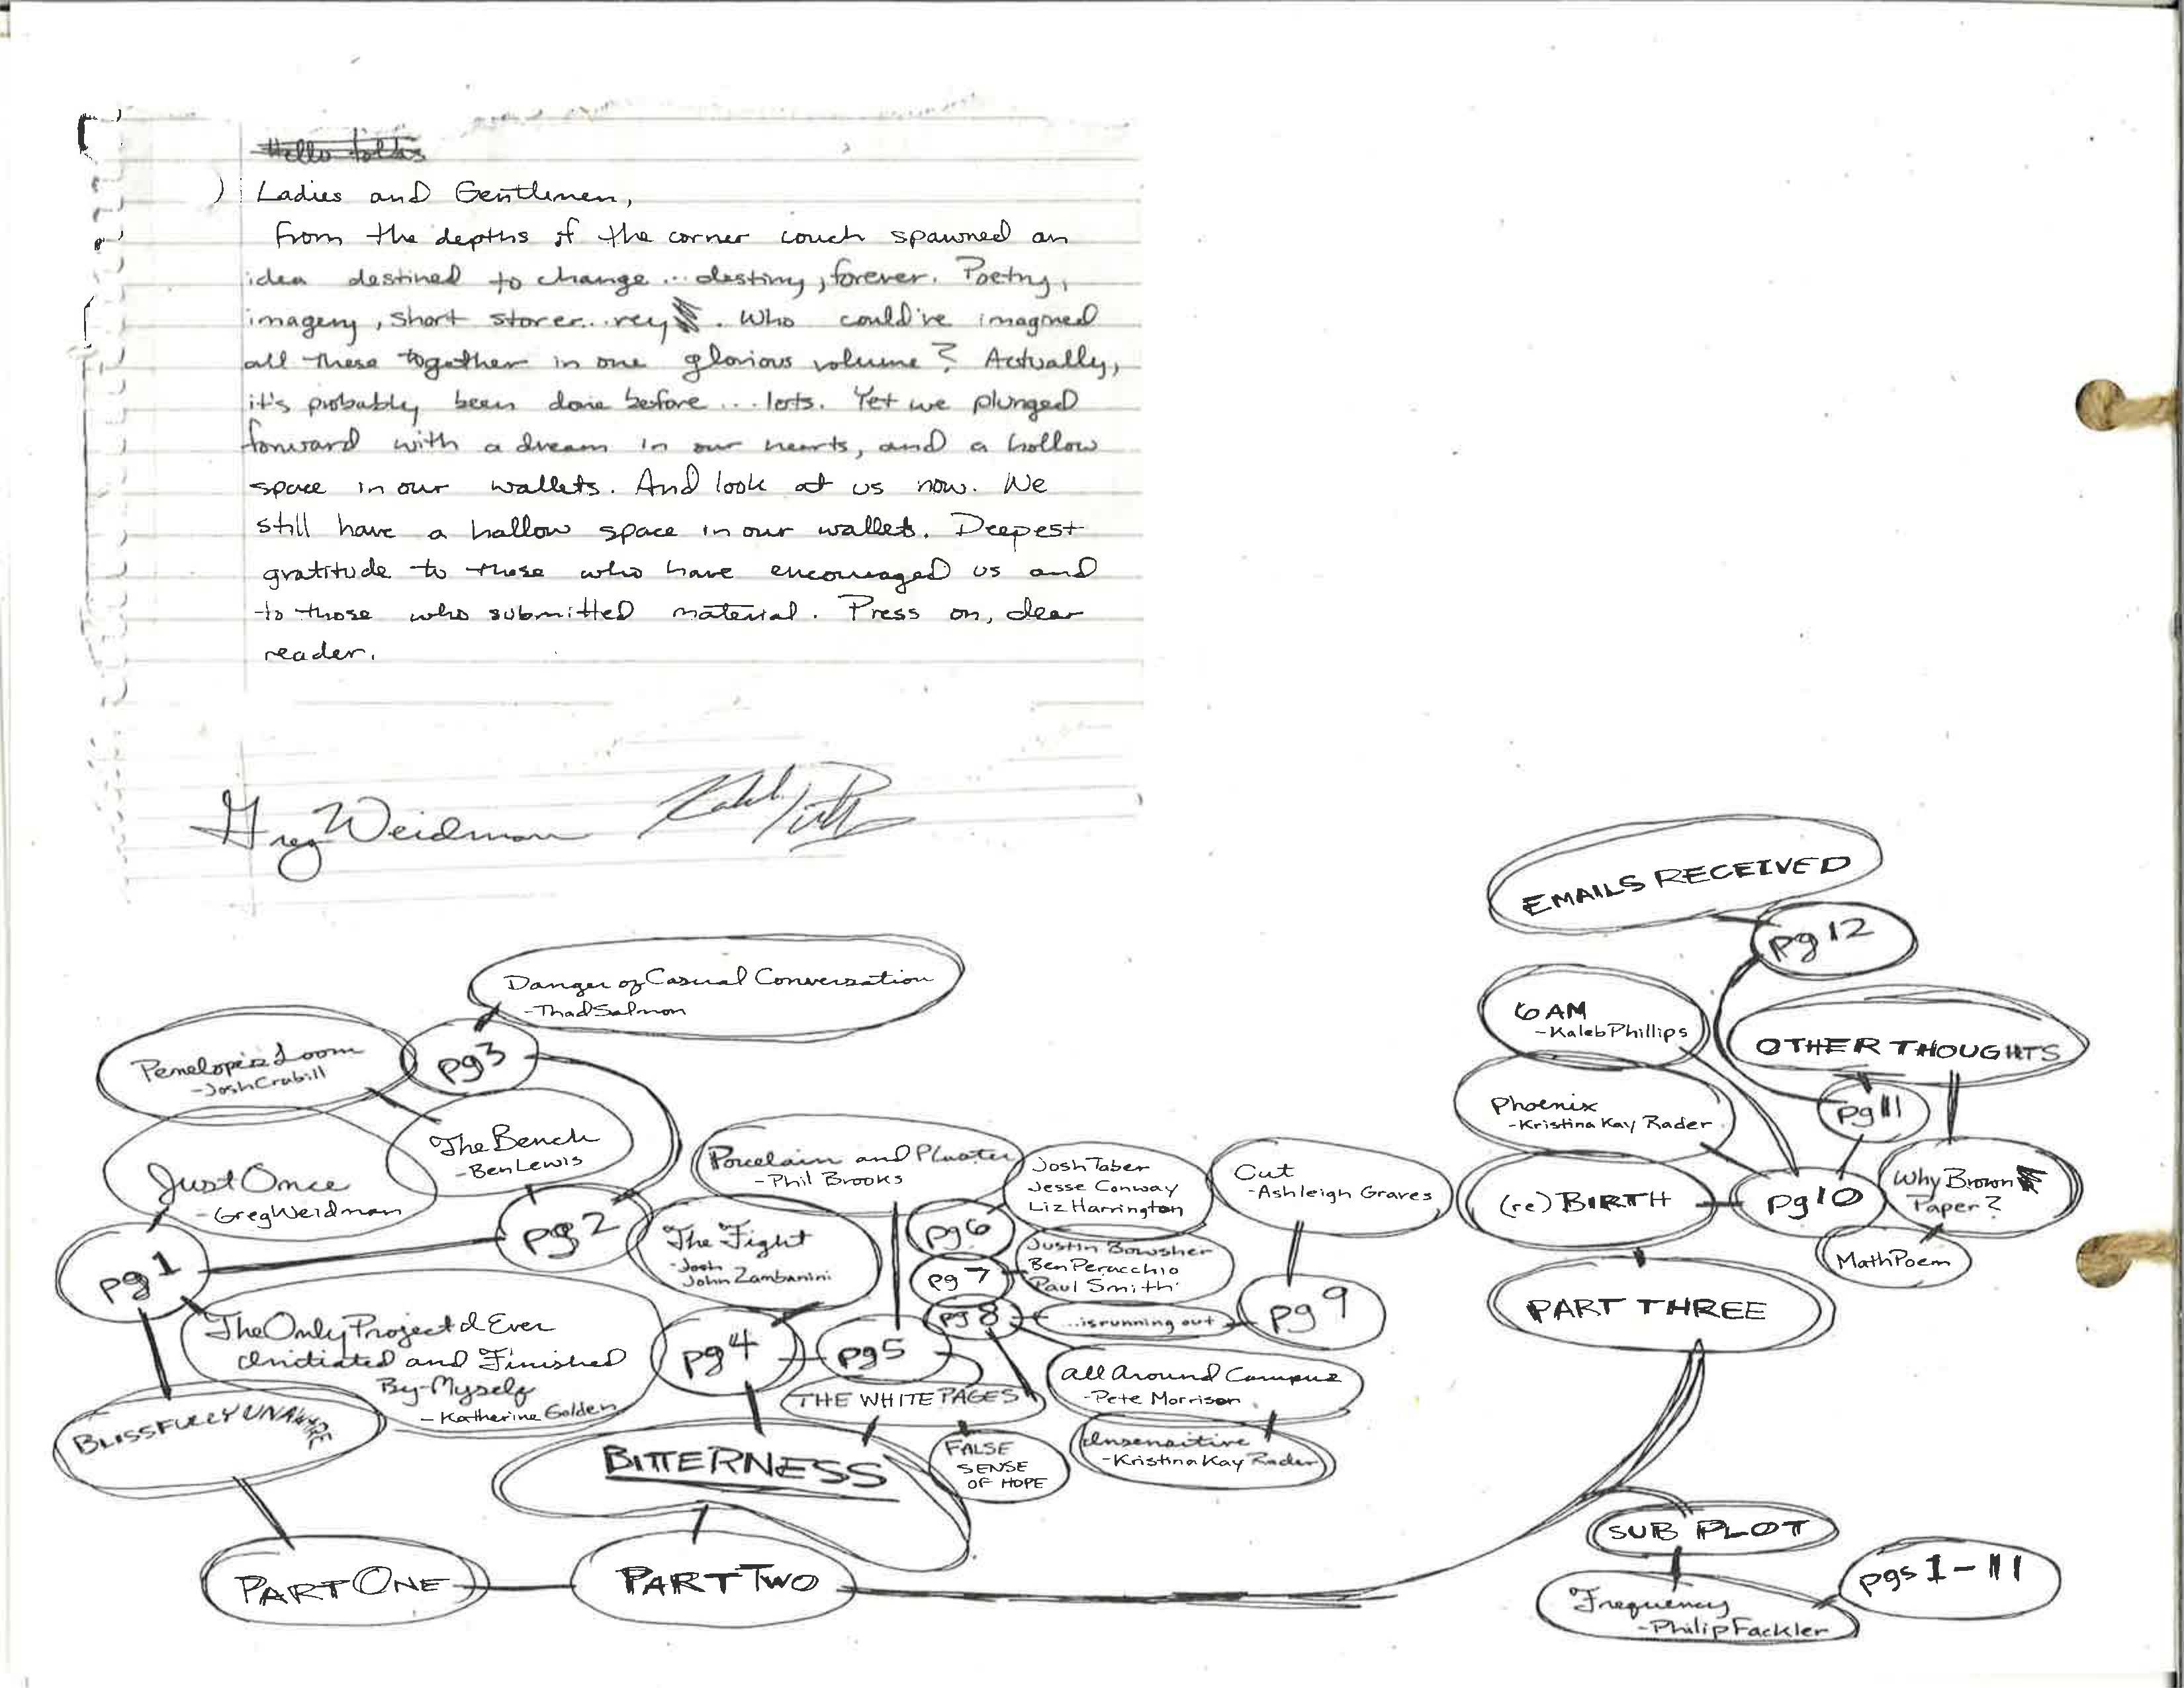 Hello folks
Ladies and Gentlemen,
From the depths of the corner couch spawned an
idea destined to change... destiny, forever. Poetry,
imagery, short storer...rey. Who could've imagined
all these together in one glorious volume? Actually,
it's probably been done before... lots. Yet we plunged
forward with a dream in our hearts, and a hollow
space in our wallets. And look at us now. We
still have a hallow space in our wallets. Deepest
gratitude to those who have encouraged us and
to those who submitted material. Press on, dear
reader.
Greg Weidman
EMAILS RECEIVED
pg 12
Danger of Casual Conversation
-Thad Salmon
6 AM
-Kaleb Phillips
OTHER THOUGHTS
Penelope's Loom
-Josh Crabill
pg 3
Phoenix
-Kristina Kay Rader
pg 11
The Bench
-Ben Lewis
Just Once
-Greg Weidman
Porcelain and Plaster
-Phil Brooks
Josh Taber
Jesse Conway
Liz Harrington
Cut
-Ashleigh Graves
(re) BIRTH
pg 10
Why Brown
Paper?
pg 1
pg 2
The Fight
-Josh
John Zambanini
pg 6
pg 7
Justin Bowsher
Ben Peracchio
Paul Smith
MathPoem
The Only Project I Ever
Initiated and Finished
By Myself
-Katherine Golden
pg 4
pg 5
pg 8
...is running out
pg 9
PART THREE
THE WHITE PAGES
All Around Campus
-Pete Morrison
BLISSFULLY UNAWARE
BITTERNESS
FALSE
SENSE
OF HOPE
Insensitive
-Kristina Kay Rader
SUB PLOT
PART ONE
PART TWO
Frequency
-Philip Fackler
pgs 1-11